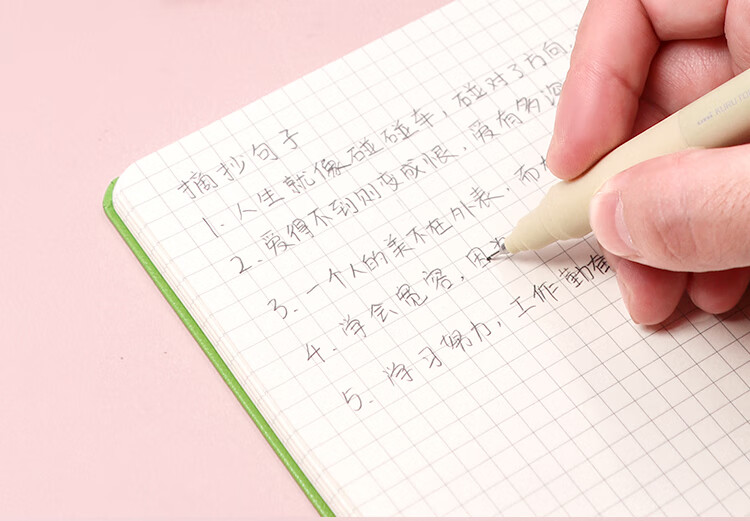 摘抄句子
1. 人生就像碰碰车，碰对了方向，
2. 爱得不到则变成恨，爱有多深
3. 一个人的美不在外表，而
4. 学会宽容，因
5. 学习努力，工作勤奋
uni